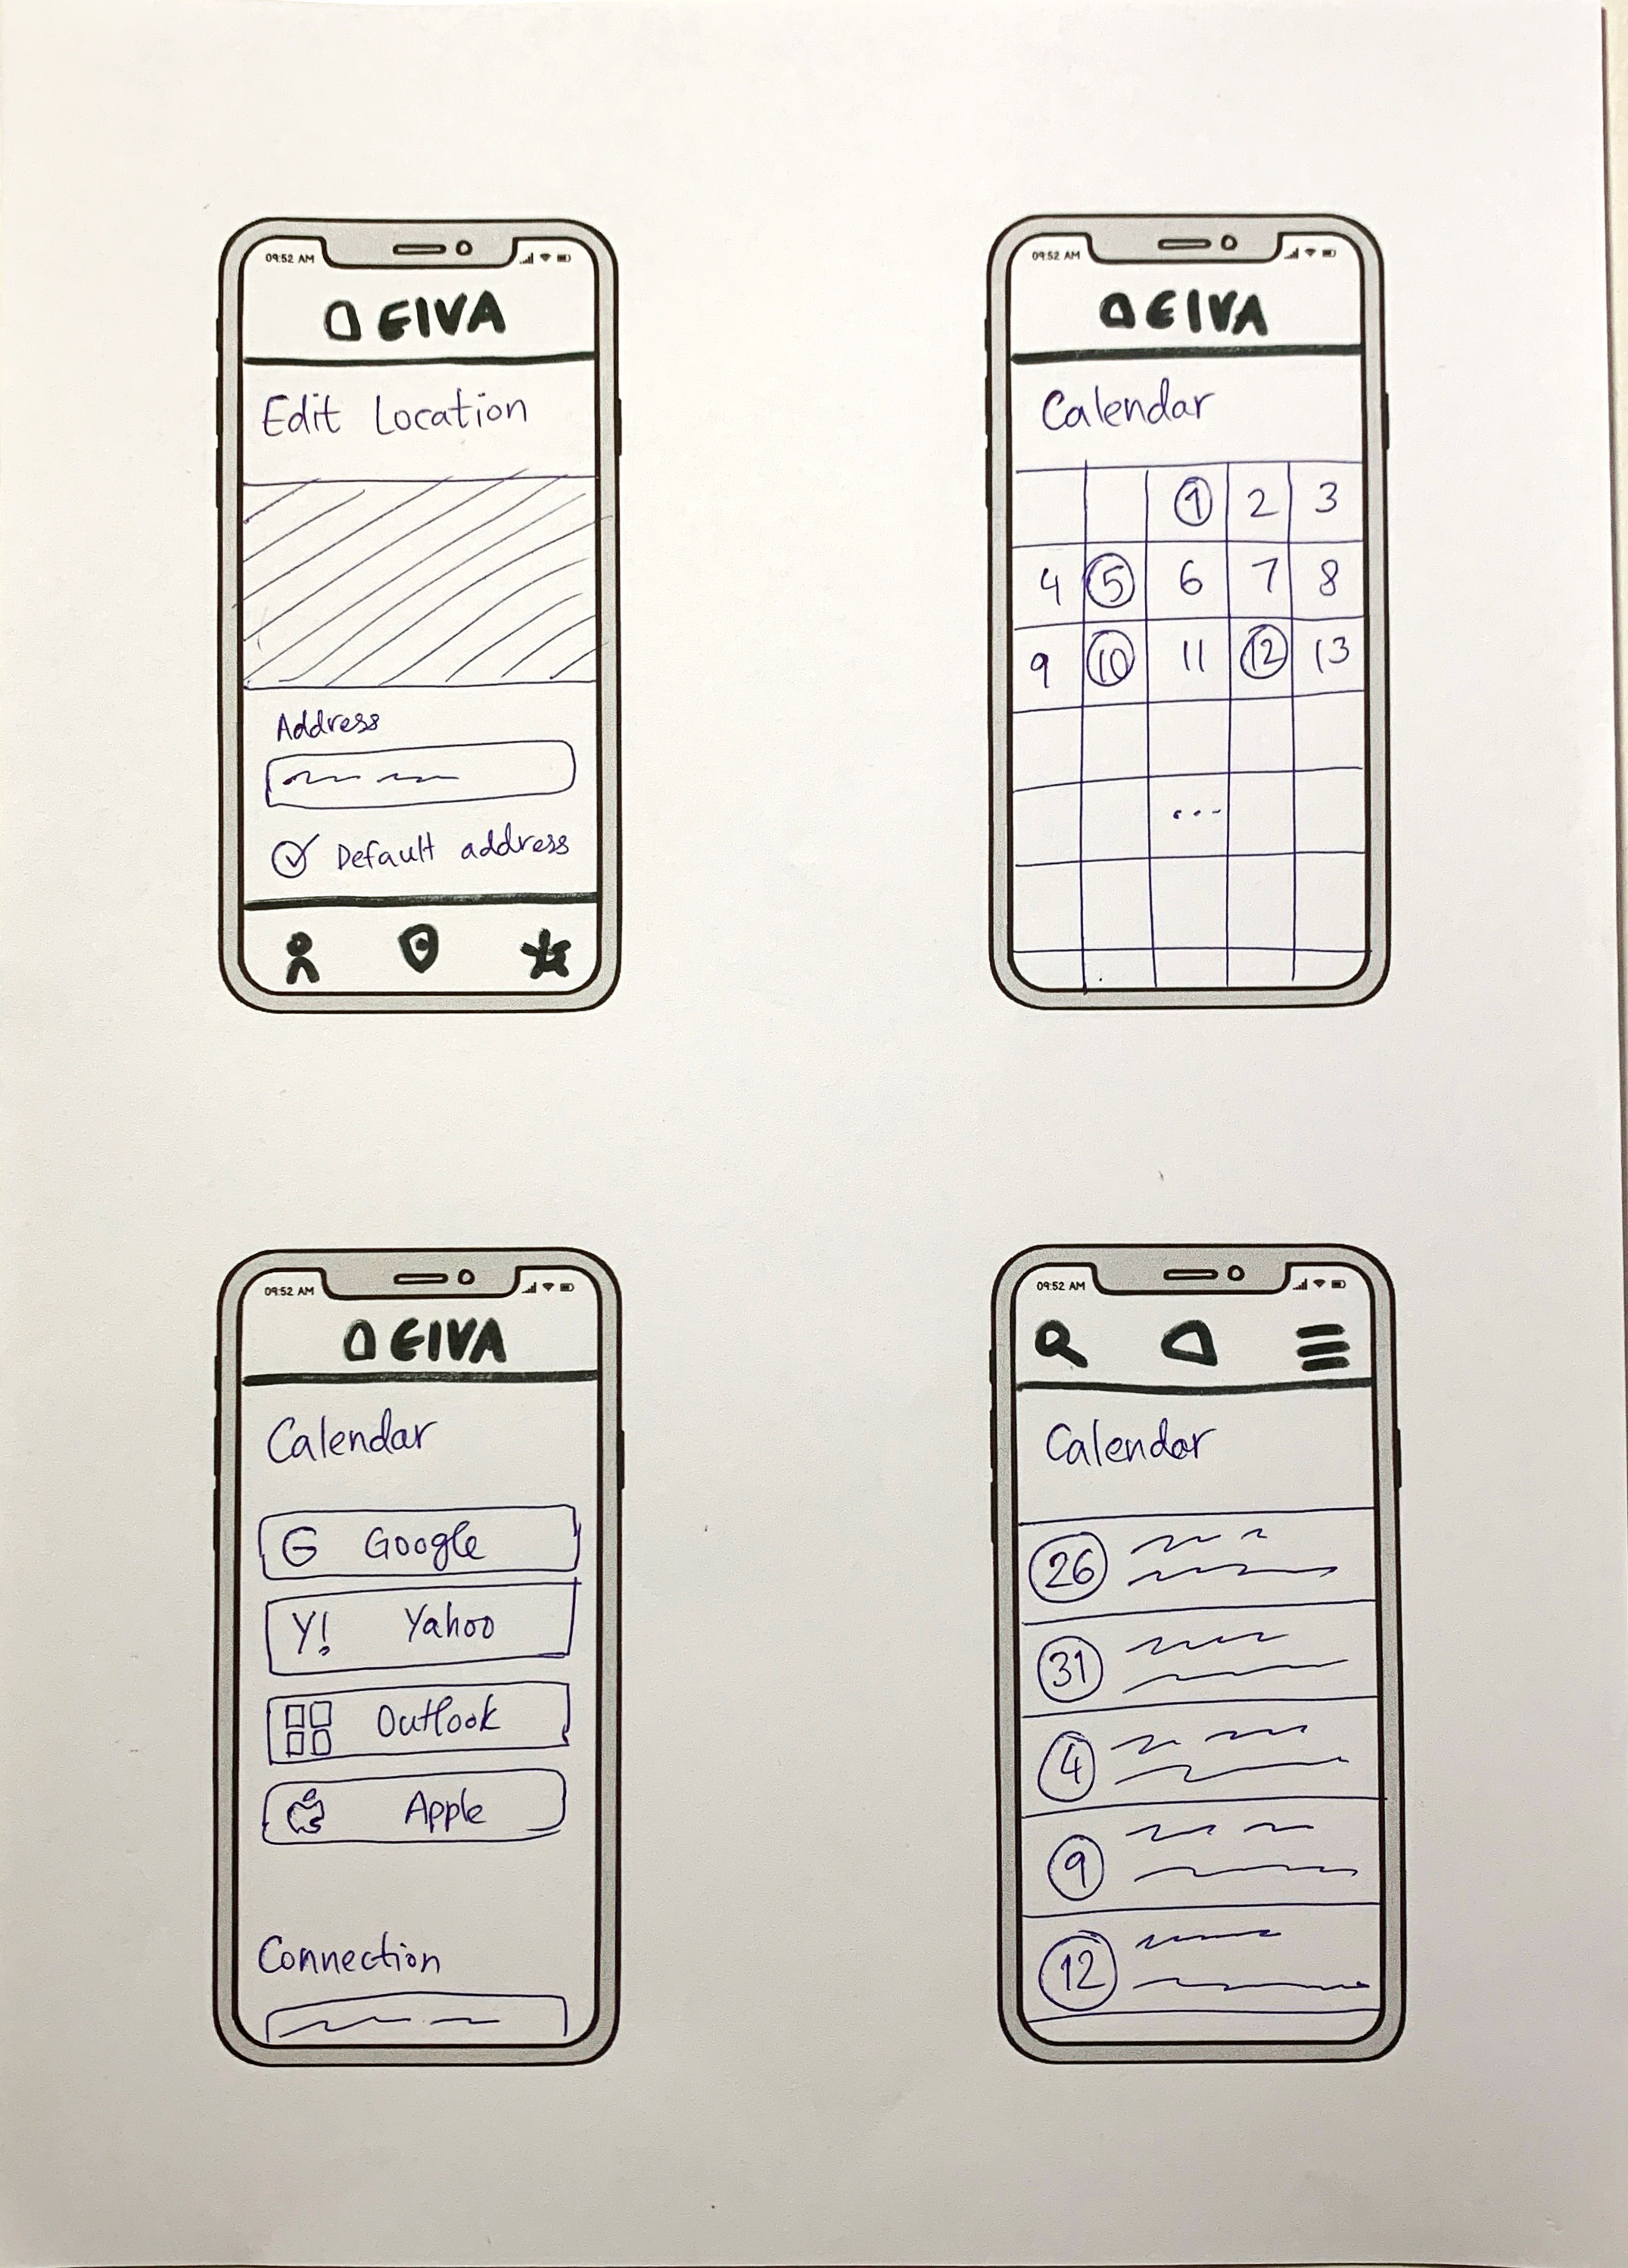 09:52 AM
EIVA
Edit Location
Address
Default address
09:52 AM
EIVA
Calendar
1 2 3
4 5 6 7 8
9 10 11 12 13
...
09:52 AM
EIVA
Calendar
G Google
Y! Yahoo
Outlook
Apple
Connection
09:52 AM
Calendar
26
31
4
9
12